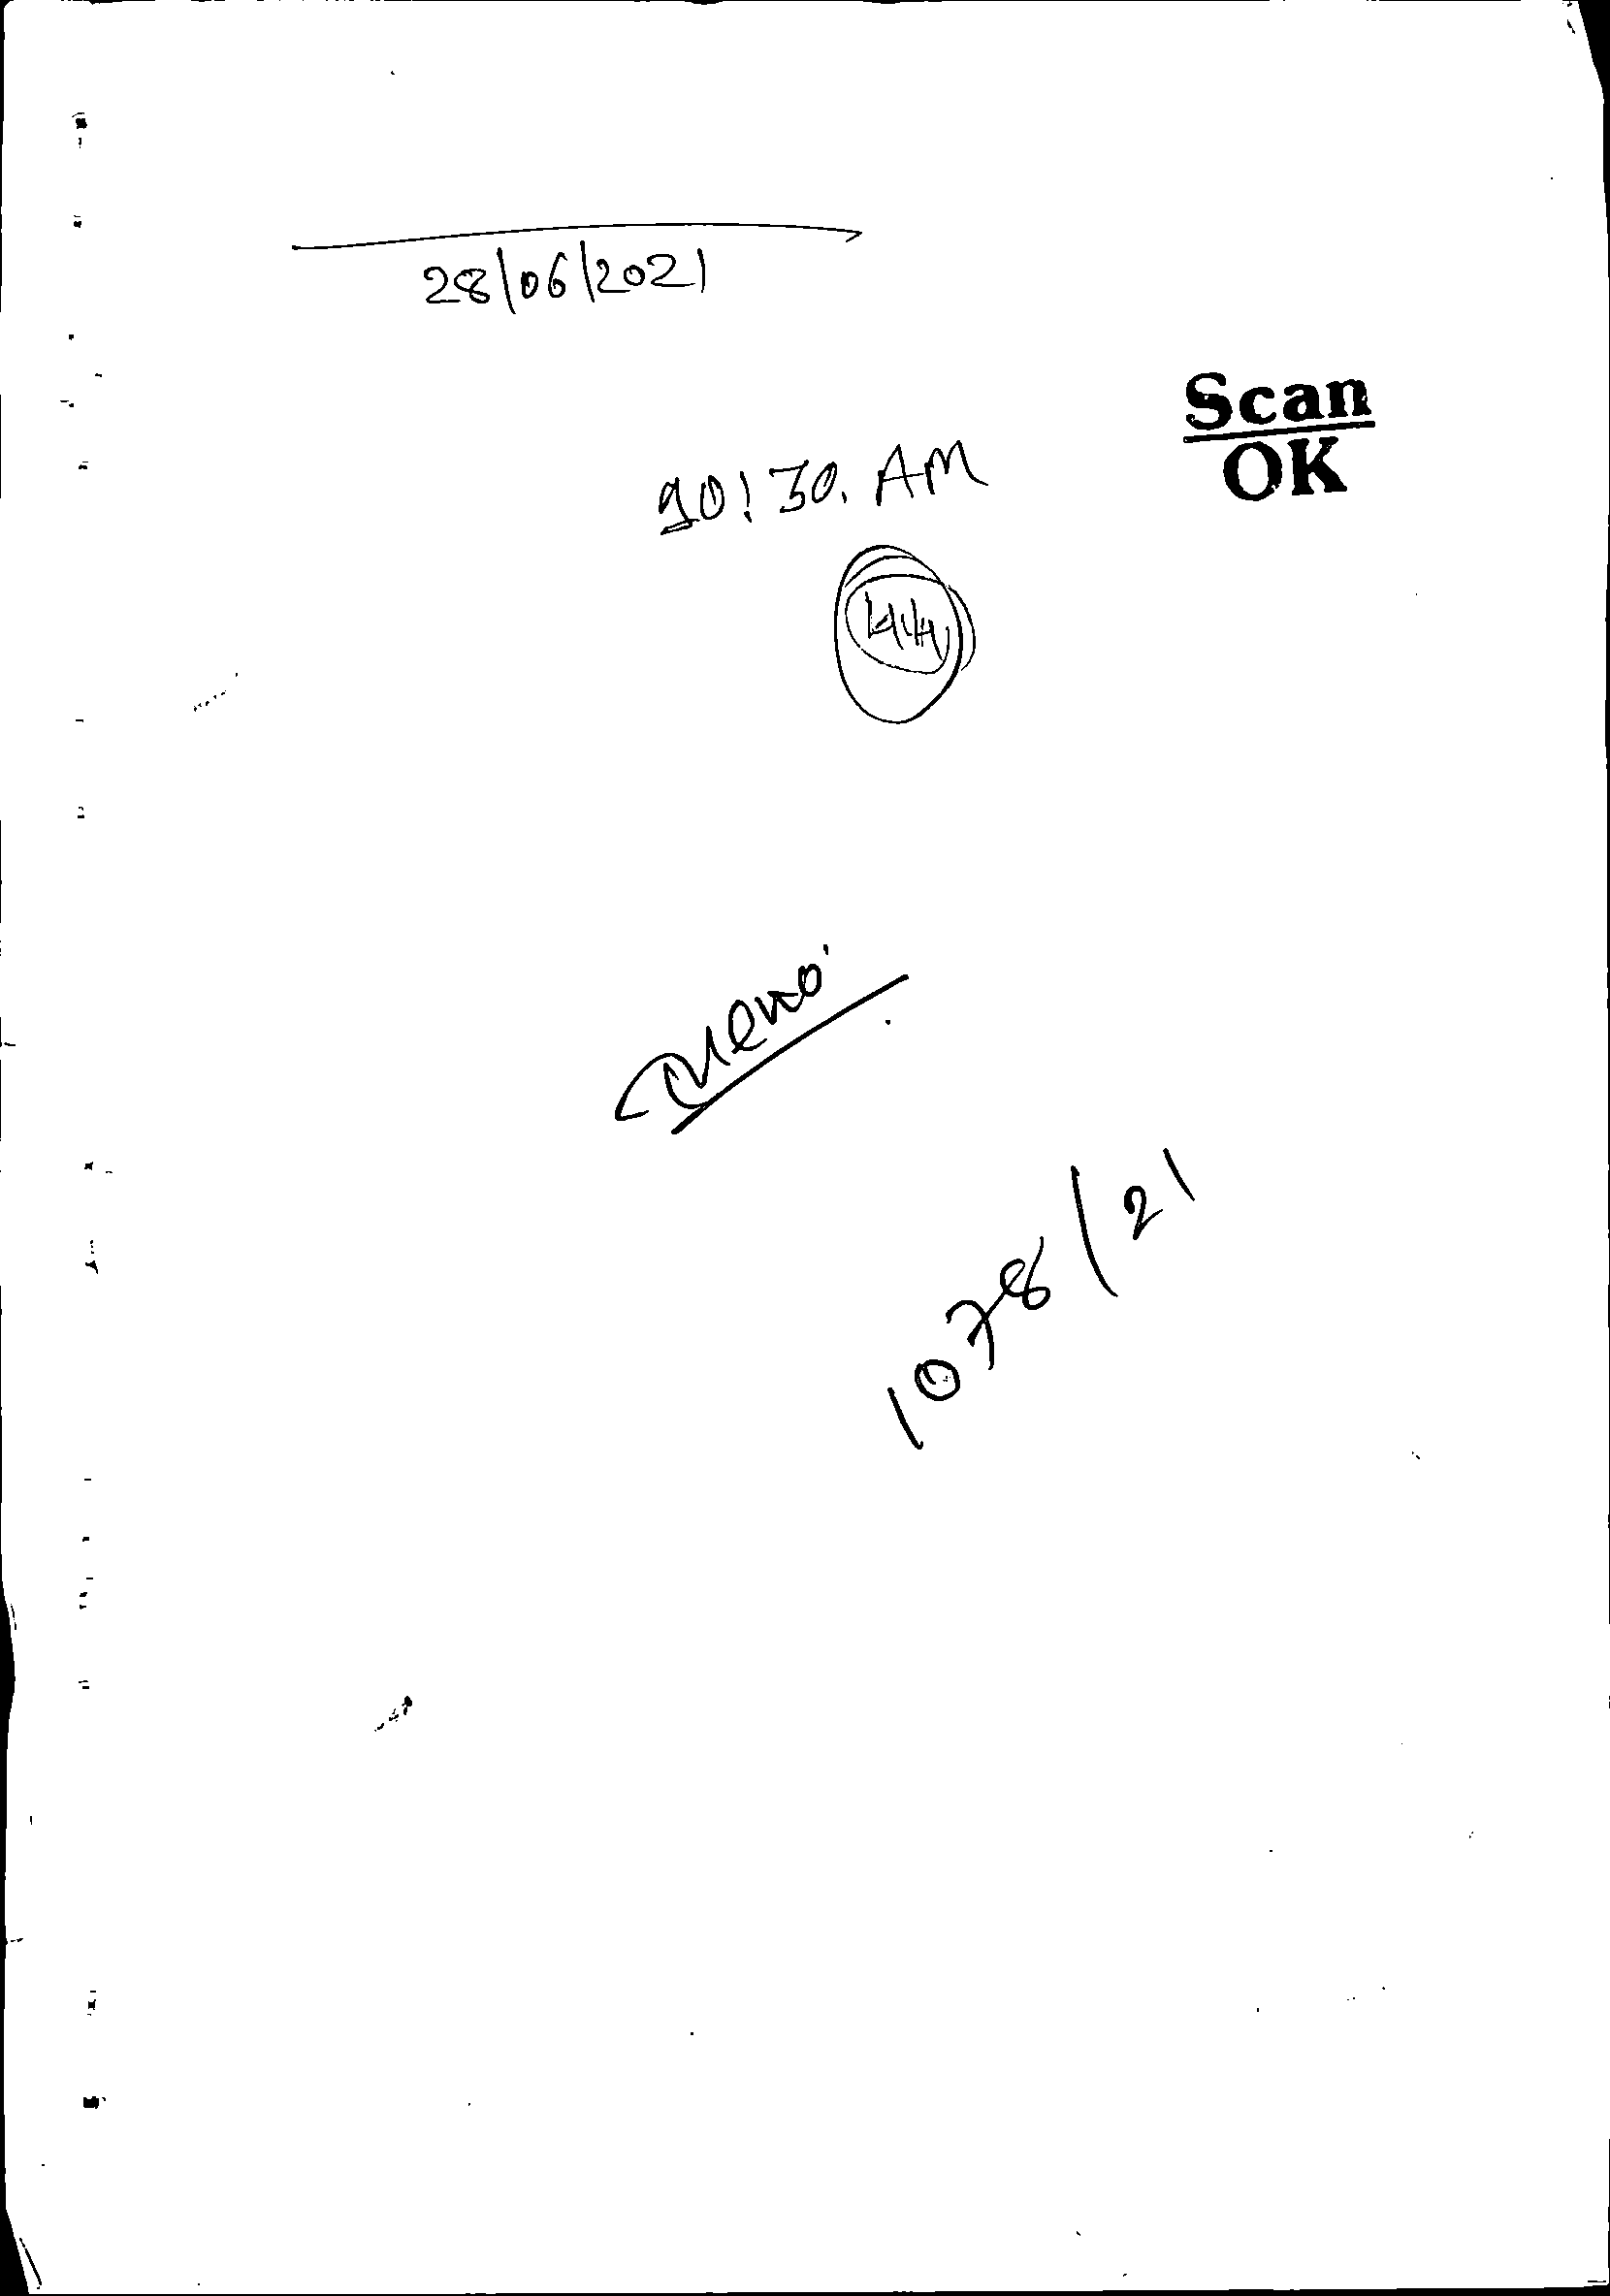 28/06/2021
Scan
OK
10:30. AM
44
1078/21